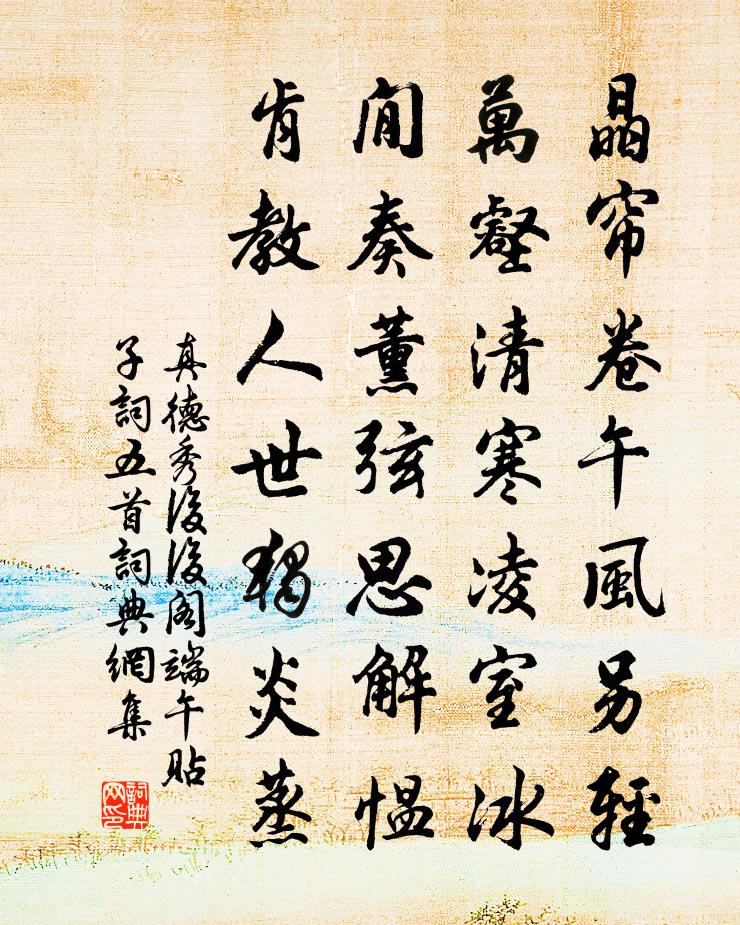 晶帘卷午風另輕
萬壑清寒凌室冰
閒奏薰弦思解慍
肯教人世獨炎蒸
真德秀後後閣端午貼
子詞五首詞典網集
詞典网印